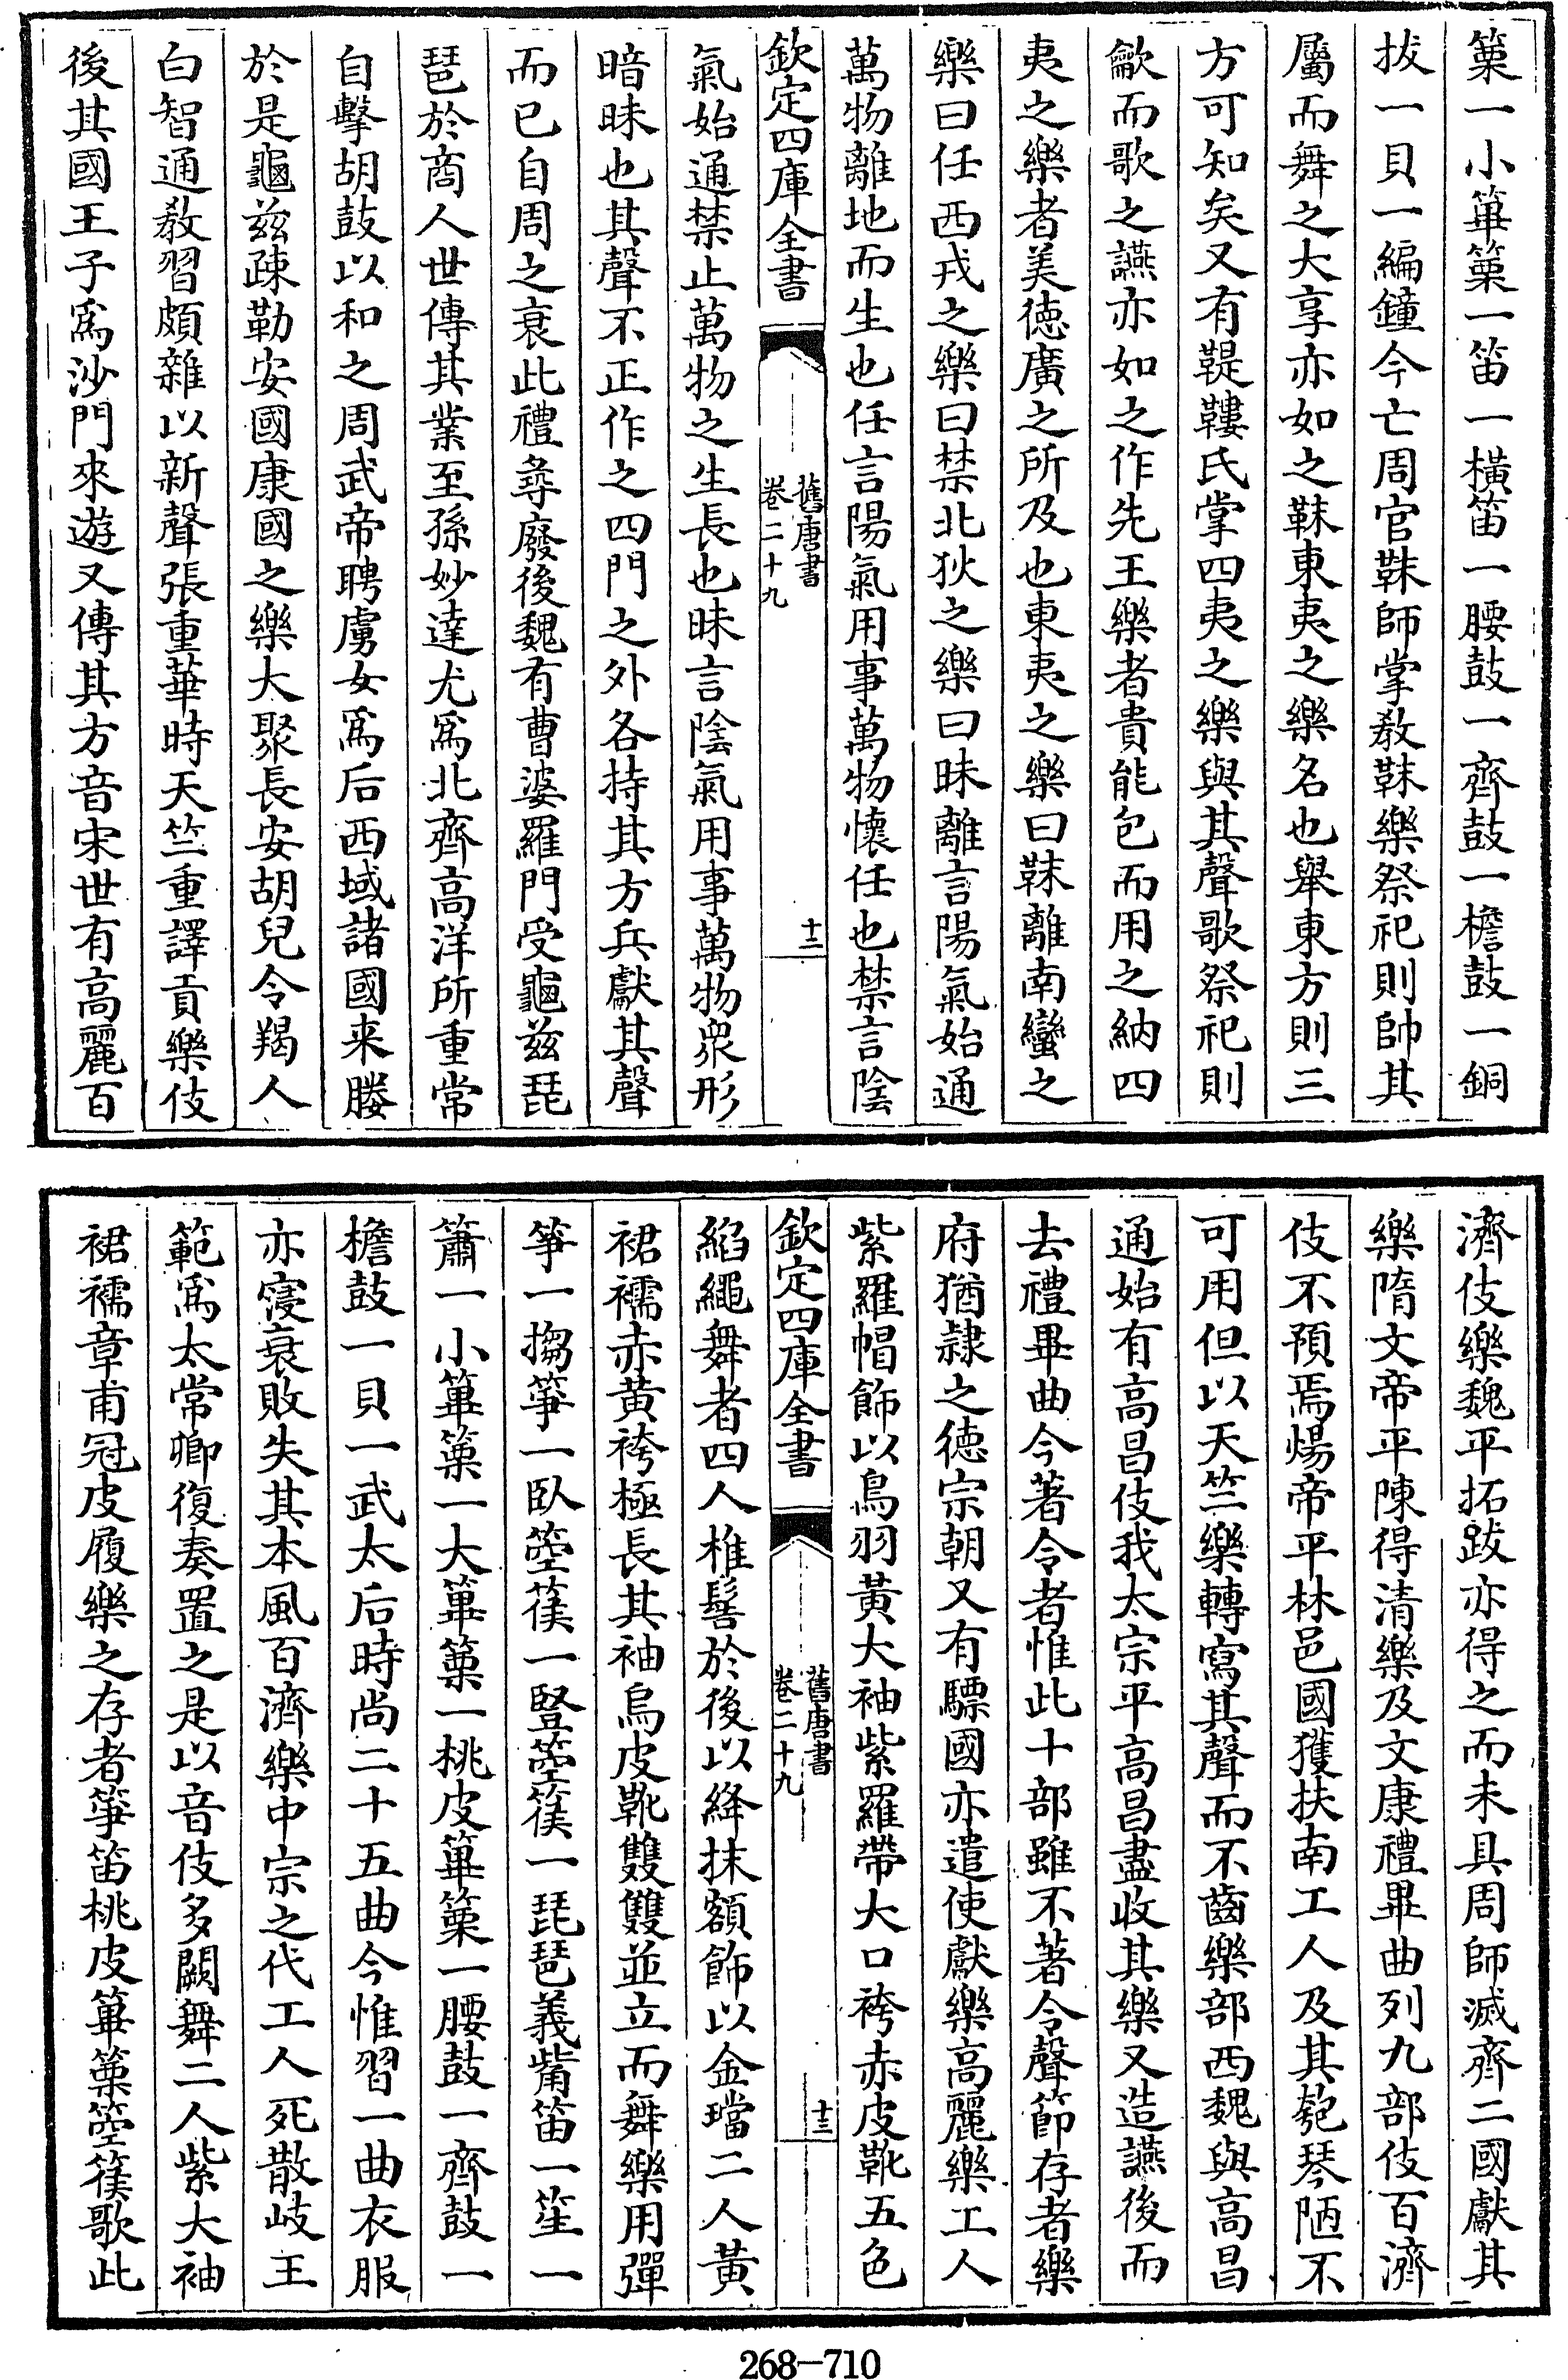 篥一小篳篥一笛一橫笛一腰鼓一齊鼓一檐鼓一銅
拔一貝一編鐘今亡周官韎師掌敎韎樂祭祀則帥其
屬而舞之大享亦如之韎東夷之樂名也舉東方則三
方可知矣又有鞮鞻氏掌四夷之樂與其聲歌祭祀則
龡而歌之讌亦如之作先王樂者貴能包而用之納四
夷之樂者美德廣之所及也東夷之樂曰韎離南蠻之
樂曰任西戎之樂曰禁北狄之樂曰昧離言陽氣始通
萬物離地而生也任言陽氣用事萬物懷任也禁言陰
欽定四庫全書
舊唐書
卷二十九
十二
氣始通禁止萬物之生長也昧言陰氣用事萬物衆形
暗昧也其聲不正作之四門之外各持其方兵獻其聲
而已自周之衰此禮尋廢後魏有曹婆羅門受龜茲琵
琶於商人世傳其業至孫妙達尤爲北齊高洋所重常
自擊胡鼓以和之周武帝聘虜女爲后西域諸國来媵
於是龜茲疎勒安國康國之樂大聚長安胡兒令羯人
白智通敎習頗雜以新聲張重華時天竺重譯貢樂伎
後其國王子爲沙門來遊又傳其方音宋世有高麗百
濟伎樂魏平拓跋亦得之而未具周師滅齊二國獻其
樂隋文帝平陳得清樂及文康禮畢曲列九部伎百濟
伎不預焉煬帝平林邑國獲扶南工人及其匏琴陋不
可用但以天竺樂轉寫其聲而不齒樂部西魏與高昌
通始有高昌伎我太宗平高昌盡收其樂又造讌後而
去禮畢曲今著令者惟此十部雖不著令聲節存者樂
府猶隷之德宗朝又有驃國亦遣使獻樂高麗樂工人
紫羅帽飾以鳥羽黃大袖紫羅帶大口袴赤皮靴五色
欽定四庫全書
舊唐書
卷二十九
十三
縚繩舞者四人椎髻於後以絳抹額飾以金璫二人黃
裙襦赤黃袴極長其袖烏皮靴雙雙並立而舞樂用彈
箏一搊箏一臥箜篌一豎箜篌一琵琶義觜笛一笙一
簫一小篳篥一大篳篥一桃皮篳篥一腰鼓一齊鼓一
檐鼓一貝一武太后時尚二十五曲今惟習一曲衣服
亦寖衰敗失其本風百濟樂中宗之代工人死散岐王
範爲太常卿復奏置之是以音伎多闕舞二人紫大袖
裙襦章甫冠皮履樂之存者箏笛桃皮篳篥箜篌歌此
268-710